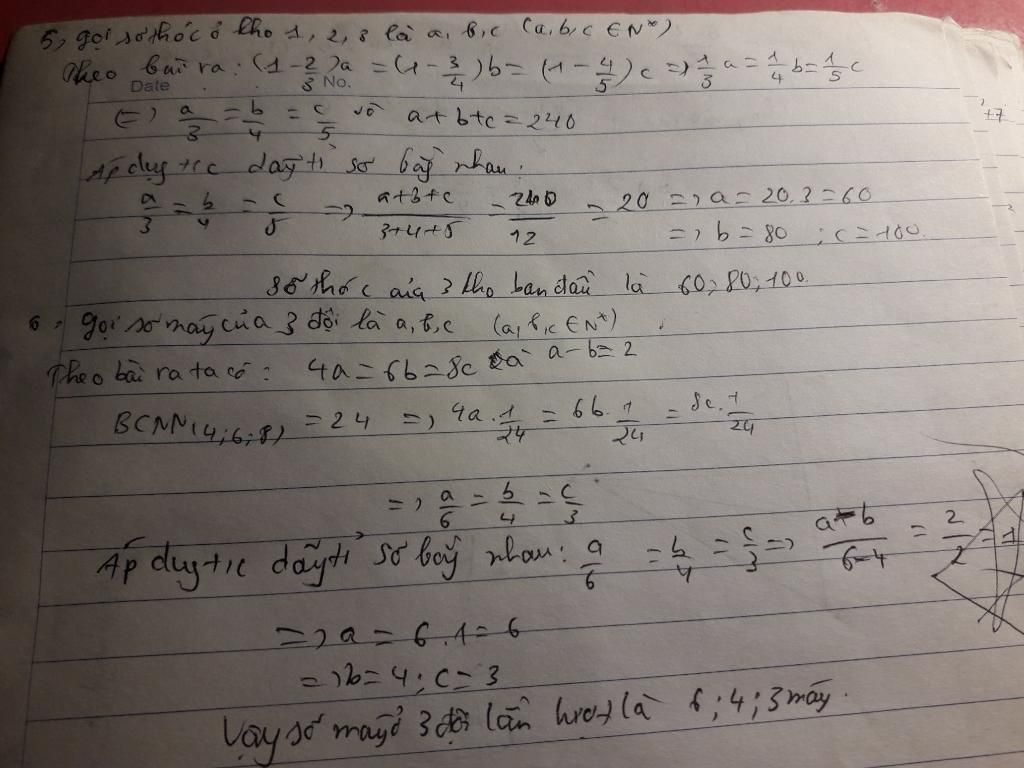 5, gọi số thóc ở kho 1, 2, 3 là a, b, c (a, b, c ∈ N*)
Theo bài ra: (1 - 2/3)a = (1 - 3/4)b = (1 - 4/5)c => 1/3 a = 1/4 b = 1/5 c
Date No.
(=) a/3 = b/4 = c/5 và a+b+c = 240
+7
Áp dụng t/c dãy tỉ số bằng nhau:
a/3 = b/4 = c/5 => a+b+c/3+4+5 = 240/12 = 20 => a = 20.3 = 60
=> b = 80 ; c = 100.
Số thóc của 3 kho ban đầu là 60; 80; 100.
6, gọi số máy của 3 đội là a, b, c (a, b, c ∈ N*)
Theo bài ra ta có: 4a = 6b = 8c và a-b = 2
BCNN(4;6;8) = 24 => 4a.1/24 = 6b.1/24 = 8c.1/24
=> a/6 = b/4 = c/3
Áp dụng t/c dãy tỉ số bằng nhau: a/6 = b/4 = c/3 => a-b/6-4 = 2/2 = 1
=> a = 6.1 = 6
=> b = 4 ; c = 3
Vậy số máy ở 3 đội lần lượt là 6; 4; 3 máy.